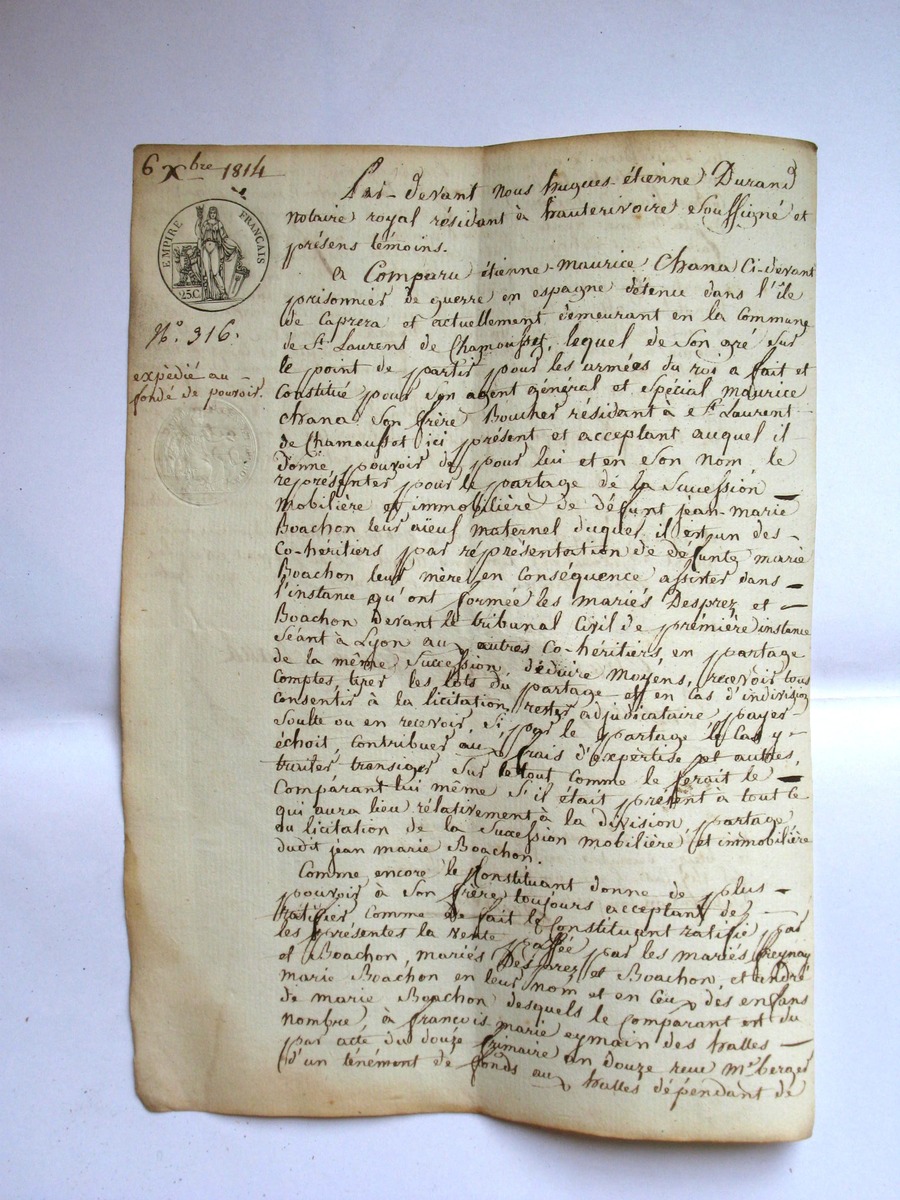 6 Xbre 1814
EMPIRE FRANÇAIS
25C
N° 316.
expédié au
fondé de pouvoir.
Par-devant nous hugues-étienne Durand
notaire royal résidant à hauterivoire soussigné et
présens témoins.
a Comparu étienne-maurice Chana Ci-devant
prisonnier de guerre en espagne détenu dans l'île
de Caprera et actuellement demeurant en la Commune
de St Laurent de Chamousset, lequel de Son gré Sur
le point de partir pour les armées du roi a fait et
Constitué pour Son agent général et spécial maurice
Chana Son frère Boucher résidant à St Laurent
de Chamousset ici présent et acceptant auquel il
donne pouvoir de pour lui et en Son nom le
représenter pour le partage de la Succession
mobilière et immobilière de défunt jean-marie
Boachon leur aïeul maternel duquel il est un des
Co-héritiers par représentation de défunte marie
Boachon leur mère, en conséquence assister dans
l'instance qu'ont formée les mariés Desprez et
Boachon devant le tribunal Civil de première instance
Séant à Lyon aux autres Co-héritiers en partage
de la même Succession, déduire moyens, recevoir tous
comptes, tirer les lots du partage et en cas d'indivision
consentir à la licitation, rester adjudicataire, payer
Soulte ou en recevoir, Si par le partage le Cas y
échoit, contribuer aux frais d'expertise et autres,
traiter transiger Sur le tout comme le ferait le
Comparant lui même S'il était présent à tout ce
qui aura lieu rélativement à la division, partage
ou licitation de la Succession mobilière et immobilière
dudit jean marie Boachon.
Comme encore le Constituant donne de plus
pouvoir à Son frère toujours acceptant de
ratifier comme de fait le Constituant ratifie par
les présentes la vente passée par les mariés freynay
et Boachon, mariés Desprez et Boachon, et andré
marie Boachon en leur nom et en Ceux des enfans
de marie Boachon desquels le Comparant est du
nombre, à françois marie eymain des halles
par acte du douze frimaire an douze reçu me berger
d'un ténément de fonds aux halles dépendant de